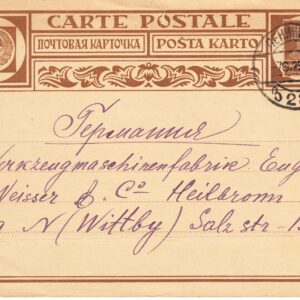 CARTE POSTALE
ПОЧТОВАЯ КАРТОЧКА POŜTA KARTO
Германия
erkzeugmaschinenfabrik Eug
Weisser & Co Heilbronn
N (Wittby) Salz str